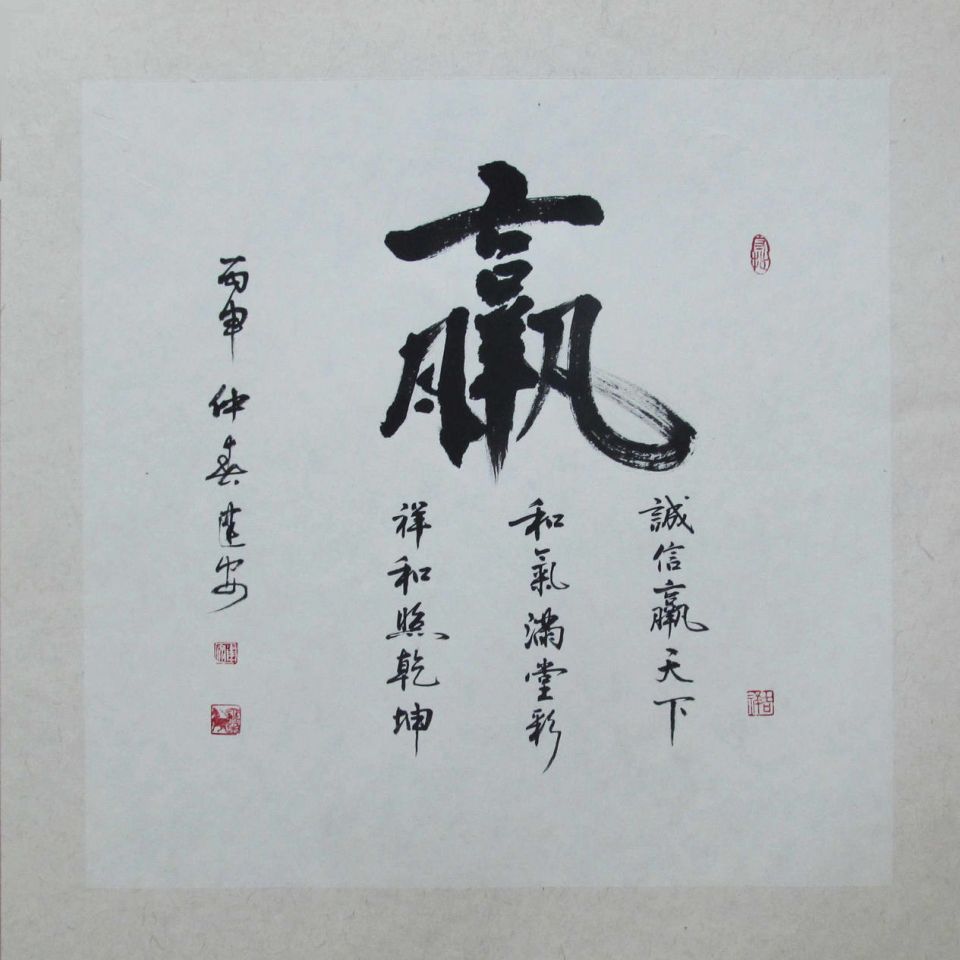 贏
誠信贏天下
和氣滿堂彩
祥和照乾坤
丙申仲春建安